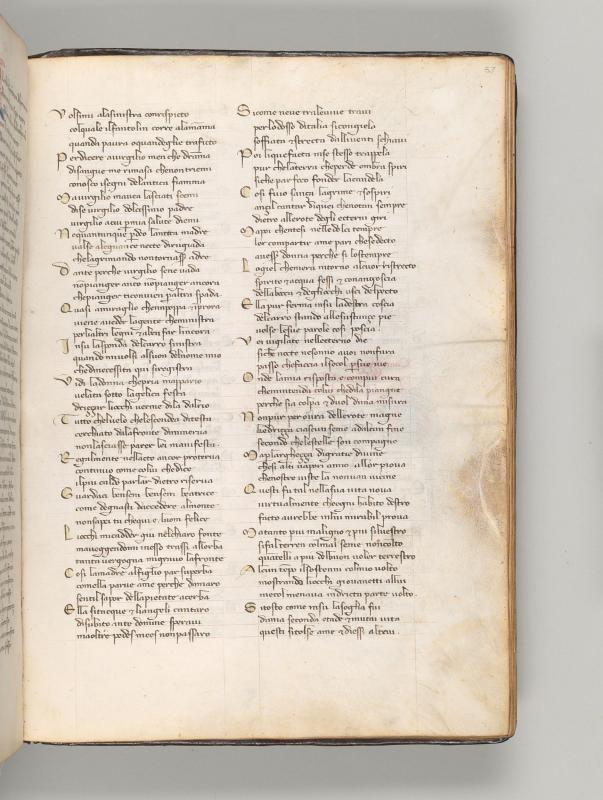 57
Volsimi alasinistra conrispicto
colquale ilfantolin corre alamama
quando paura oquandeglie trafitto
Perdicere avirgilio men che drama
disangue mo rimasa chenon triemi
conosco isegni delantica fiamma
Mavirgilio navea lasciati scemi
dise virgilio dolcissimo padre
virgilio acui pmia salute diemi
Nequantunque perdeo lantica madre
valse
chelagrimando nontornassr adre
Dante perche virgilio sene vada
nonpianger anco nonpianger ancora
chepianger ticonvien paltra spada
Quasi amiraglio chempoppa eprora
viene aveder lagente cheministra
perlialtri legni eaben far lincora
Insu lasponda delcarro sinistra
quando mivolsi alsuon delnome mio
chedinecessita qui siregistra
Vidi ladonna chepria mappario
velata sotto langelica festa
drizzar liocchi verme dila dalrio
Tutto chelvelo chelescendea ditesta
cerchiato dalafronte diminerva
nonlasciasse parer lei manifesta
Regalmente nellacto ancor proterva
continuo come colui chedice
ilpiu caldo parlar dietro riserva
Guardaci bensem bensem beatrice
come degnasti daccedere almonte
nonsapei tu chequi e luom felice
Liocchi micadder giu nelchiaro fonte
maveggendomi inesso trassi allerba
tanta vergogna migravo lafronte
Cosi lamadre alfiglio par superba
comella parve ame perche damaro
sentil sapor dellapietate acerba
Ella sitacque e liangeli cantaro
disubito inte domine speravi
maoltre pedes meos nonpassaro
Sicome neve tralevive travi
perlodosso ditalia sicongiela
soffiata estretta dalliventi schiavi
Poi liquefatta inse stesso trappela
pur chelaterra cheperde ombra spiri
siche par foco fonder lacandela
Cosi fuio sanza lagrime esospiri
anzil cantar diquei chenotan sempre
dietro allerote degli etterni giri
Mapoi chentesi nelledolci tempre
lor compartir ame pari chesedetto
avesser donna perche si lostempre
Logiel chemera intorno alcuor ristrecto
spirito eacqua fessi e conangoscia
dellabocca edegliocchi usci delpecto
Ella pur ferma insu ladestra coscia
delcarro stando allesustanze pie
volse lesue parole cosi poscia
Voi vigilate nelletterno die
siche nocte nesonno avoi nonfura
passo chefaccia ilsecol psue vie
Onde lamia risposta e compiu cura
chemintenda colui chedila piangne
perche sia colpa eduol duna misura
Nonpur per ovra dellerote magne
chedrizzan ciascun seme adalcun fine
secondo chelestelle son compagne
Maplarghezza digratie divine
chesi alti vapori anno allor piova
chenostre viste la nonvan vicine
Questi fu tal nellasua vita nova
virtualmente chogni habito destro
facto averebbe inlui mirabil prova
Matanto piu maligno epiu silvestro
sifal terren colmal seme noncolto
quantelli a piu delbuon vigor terrestro
Alcun tempo ilsostenni colmio volto
mostrando liocchi giovanetti allui
meco lmenava indritta parte volto
Sitosto come insu lasoglia fui
dimia seconda etade emutai vita
questi sitolse ame ediessi altrui